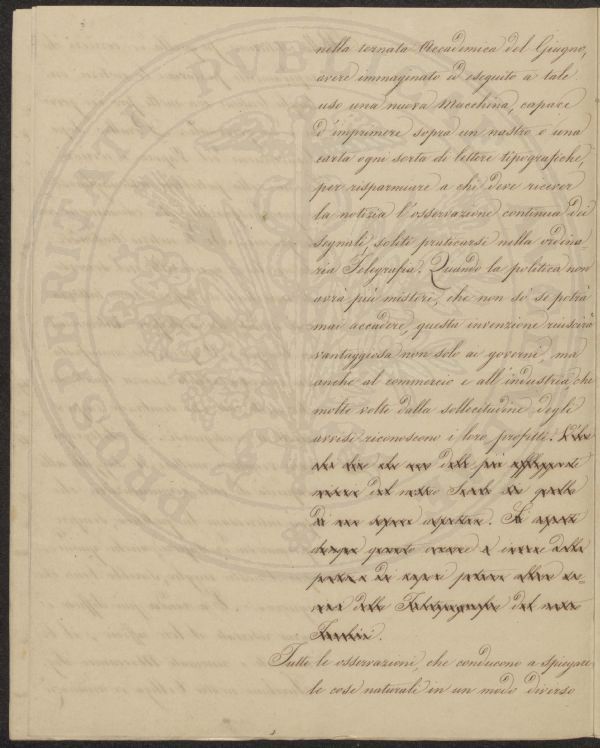 nella tornata Accademica del Giugno,
avere immaginato ed eseguito a tale
uso una nuova Macchina, capace
d'imprimere sopra un nastro o una
carta ogni sorta di lettere tipografiche,
per risparmiare a chi deve ricever
la notizia l'osservazione continua dei
segnali, soliti praticarsi nella ordina
ria Telegrafia. Quando la politica non
avrà più misteri, che non sò se potrà
mai accadere, questa invenzione riuscirà
vantaggiosa non solo ai governi, ma
anche al commercio e all'industria che
molte volte dalla sollecitudine degli
avvisi riconoscono i loro profitti.
che una delle più
del nostro
di non sapere aspettare.
di sapere
delle del nostro
Tutte le osservazioni, che conducono a spiegare
le cose naturali in un modo diverso
PROSPERITATI PVBLICAE